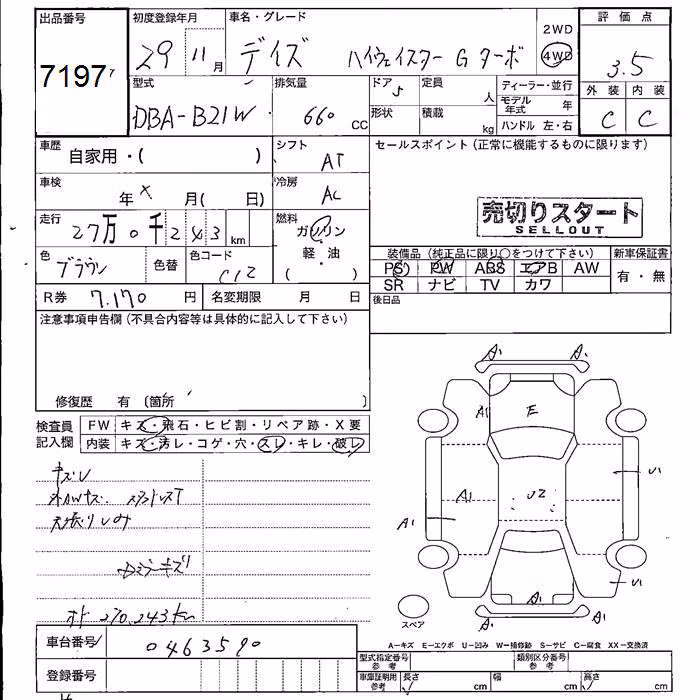 出品番号
7197
初度登録年月
29 11月
車名・グレード
デイズ ハイウェイスター G ターボ
2WD
4WD
評価点
3.5
外装 内装
C C
型式
DBA-B21W
排気量
660 CC
ドア 5
定員 人
形状
積載 kg
ディーラー・並行
モデル年式 年
ハンドル 左・右
車歴
自家用・( )
シフト
AT
セールスポイント(正常に機能するものに限ります)
車検
年 × 月( 日)
冷房
AC
売切りスタート
SELLOUT
走行
27万0千243km
燃料
ガソリン
軽・油
( )
色
ブラウン
色替
色コード
C12
装備品(純正品に限り○をつけて下さい)
PS PW ABS エアB AW
SR ナビ TV カワ
新車保証書
有・無
R券 7.170円
名変期限 月 日
後日品
注意事項申告欄(不具合内容等は具体的に記入して下さい)
修復歴 有 〔箇所 〕
検査員
記入欄
FW キズ・飛石・ヒビ割・リペア跡・X要
内装 キズ・汚レ・コゲ・穴・スレ・キレ・破レ
オド 270.243km
A1 A1
A1 E
A1 U2 U1
A1
A1 U1
A1
スペア
A—キズ E—エクボ U—凹み W—補修跡 S—サビ C—腐食 XX—交換済
車台番号
0463590
登録番号
型式指定番号
参考
類別区分番号
参考
車庫証明用
参考
長さ cm
幅 cm
高さ cm